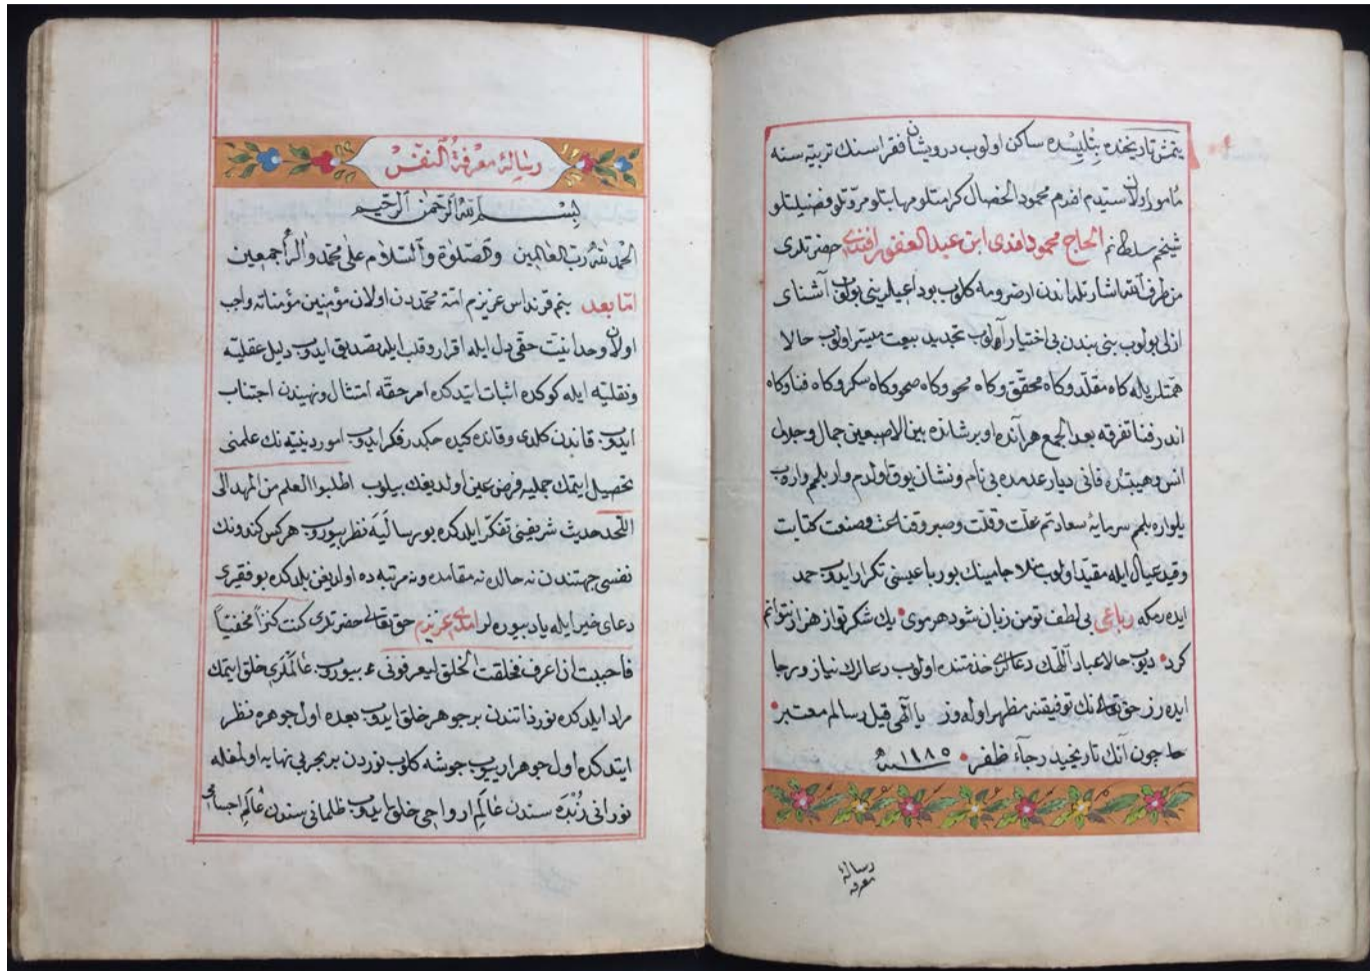 يتمش تاريخنده بتليسده ساكن اولوب درويشان فقراسنك تربيه سنه
مأمور اولان سيدم افندم محمود الخصال كرامتلو مهابتلو مروتلو فضيلتلو
شيخم سلطانم الحاج محمود افندى ابن عبد الغفور افندى حضرتلرى
من طرف الله اشارتله اندن ارضرومه كلوب بو داعيلرينى بولوب آشناى
ازلى بولوب بنى بندن بى اختيار آلوب تجديد بيعت ميسر اولوب حالا
همتلريله كاه مقلد وكاه محقق وكاه محو وكاه صحو وكاه سكر وكاه فنا وكاه
اندر فنا تفرقه بعد الجمع هر آنده او بر شانده بين الاصبعين جمال وجلال
انس وهيبتده فانى ديار عدمده بى نام ونشان يوق اولدم وار بلم واروب
يلواره بلم سرمايۀ سعادتم علت وقلت وصبر وقناعت وصنعت كتابت
وقيد عيال ايله مقيد اولوب منلا جامينك بو رباعيسنى تكرار ايدوب حمد
ايده رمكه رباعى بى لطف تو من زبان شود هر موى يك شكر تو از هزار نتوانم
كرد ديوب حالا عباد اللهك دعالرى خذمتنده اولوب دعالرك نياز ورجا
ايده رز حق تعالى نك توفيقنه مظهر اوله وز يا الهى قيل رسالم معتبر
چون آنك تاريخيدر رجاء ظفر سنه ١١٨٥
رسالۀ
معرفة
رسالۀ معرفة النفس
بسم الله الرحمن الرحيم
الحمد لله رب العالمين والصلوة والسلام على محمد وآله اجمعين
اما بعد بنم قرنداس عزيزم امة محمددن اولان مؤمنين مؤمناته واجب
اولان وحدانيت حقى دل ايله اقرار وقلب ايله تصديق ايدوب دليل عقليه
ونقليه ايله كوكده اثبات ايتدكده امر حقه امتثال ونهيندن اجتناب
ايدوب قاندن كلدى وقانده كيده جكدر فكر ايدوب امور دينيه نك علمنى
تحصيل ايتمك جمليه فرض عين اولديغنى بيلوب اطلبوا العلم من المهد الى
اللحد حديث شريفنى تفكر ايلدكده بو رساليه نظر بيوروب هركس كندونك
نفسى جهتندن نه حالده نه مقامده ونه مرتبه ده اولديغن بلدكده بو فقيرى
دعاى خير ايله ياد بيوره لر امدى عزيزم حق تعالى حضرتلرى كنت كنزاً مخفيّاً
فاحببت ان اعرف فخلقت الخلق ليعرفونى بيوروب عالملرى خلق ايتمك
مراد ايلدكده نور ذاتندن بر جوهر خلق ايدوب بعده اول جوهره نظر
ايتدكده اول جوهر اريوب جوشه كلوب نوردن بر بحر بى نهايه اولمغله
نورانى زبده سندن عالم ارواحى خلق ايدوب ظلمانى سندن عالم اجسامى